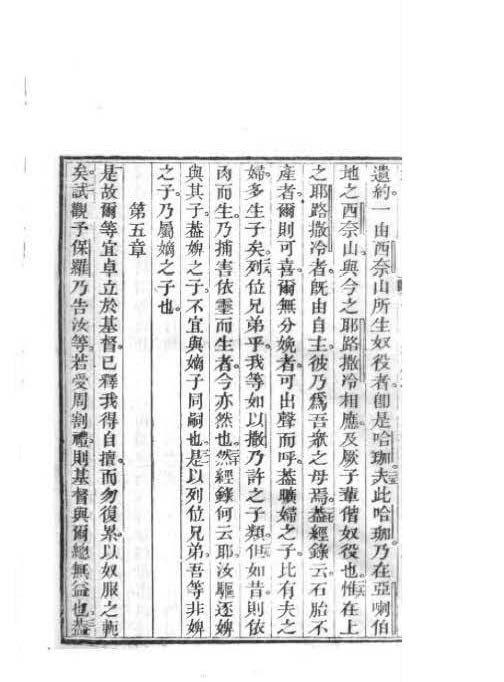 遺約一由西奈山所生奴役者卽是哈珈夫此哈珈乃在亞喇伯
地之西奈山與今之耶路撒冷相應及厥子輩偕奴役也惟在上
之耶路撒冷者旣由自主彼乃爲吾衆之母焉葢經錄云石胎不
產者爾則可喜爾無分娩者可出聲而呼葢曠婦之子比有夫之
婦多生子矣列位兄弟乎我等如以撒乃許之子類但如昔則依
肉而生乃捕害依靈而生者今亦然也然經錄何云耶汝驅逐婢
與其子葢婢之子不宜與嫡子同嗣也是以列位兄弟吾等非婢
之子乃屬嫡之子也
第五章
是故爾等宜卓立於基督已釋我得自擅而勿復累以奴服之軛
矣試觀予保羅乃告汝等若受周割禮則基督與爾總無益也葢